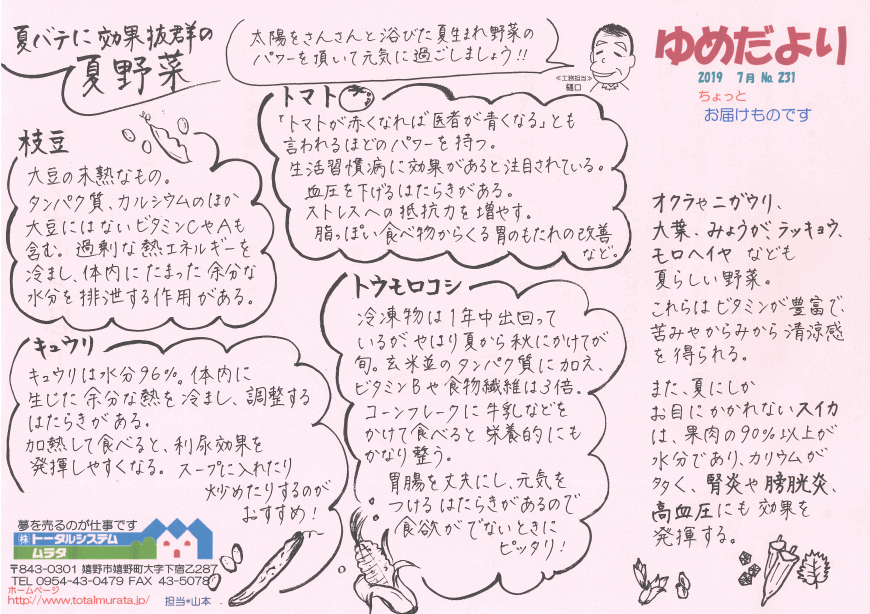 夏バテに効果抜群の
夏野菜
太陽をさんさんと浴びた夏生まれ野菜の
パワーを頂いて元気に過ごしましょう!!
≪工務担当≫
樋口
ゆめだより
2019 7月 No. 231
ちょっと
お届けものです
枝豆
大豆の未熟なもの。
タンパク質、カルシウムのほか
大豆にはないビタミンCやAも
含む。過剰な熱エネルギーを
冷まし、体内にたまった余分な
水分を排泄する作用がある。
トマト
「トマトが赤くなれば医者が青くなる」とも
言われるほどのパワーを持つ。
生活習慣病に効果があると注目されている。
血圧を下げるはたらきがある。
ストレスへの抵抗力を増やす。
脂っぽい食べ物からくる胃のもたれの改善
など。
キュウリ
キュウリは水分96%。体内に
生じた余分な熱を冷まし、調整する
はたらきがある。
加熱して食べると、利尿効果を
発揮しやすくなる。スープに入れたり
炒めたりするのが
おすすめ!
トウモロコシ
冷凍物は1年中出回って
いるがやはり夏から秋にかけてが
旬。玄米並のタンパク質に加え、
ビタミンBや食物繊維は3倍。
コーンフレークに牛乳などを
かけて食べると栄養的にも
かなり整う。
胃腸を丈夫にし、元気を
つけるはたらきがあるので
食欲がでないときに
ピッタリ!
オクラやニガウリ、
大葉、みょうがラッキョウ、
モロヘイヤなども
夏らしい野菜。
これらはビタミンが豊富で、
苦みやからみから清涼感
を得られる。
また、夏にしか
お目にかかれないスイカ
は、果肉の90%以上が
水分であり、カリウムが
多く、腎炎や膀胱炎、
高血圧にも効果を
発揮する。
夢を売るのが仕事です
㈱トータルシステム
ムラタ
〒843-0301 嬉野市嬉野町大字下宿乙287
TEL 0954-43-0479 FAX 43-5078
ホームページ
http://www.totalmurata.jp/ 担当*山本